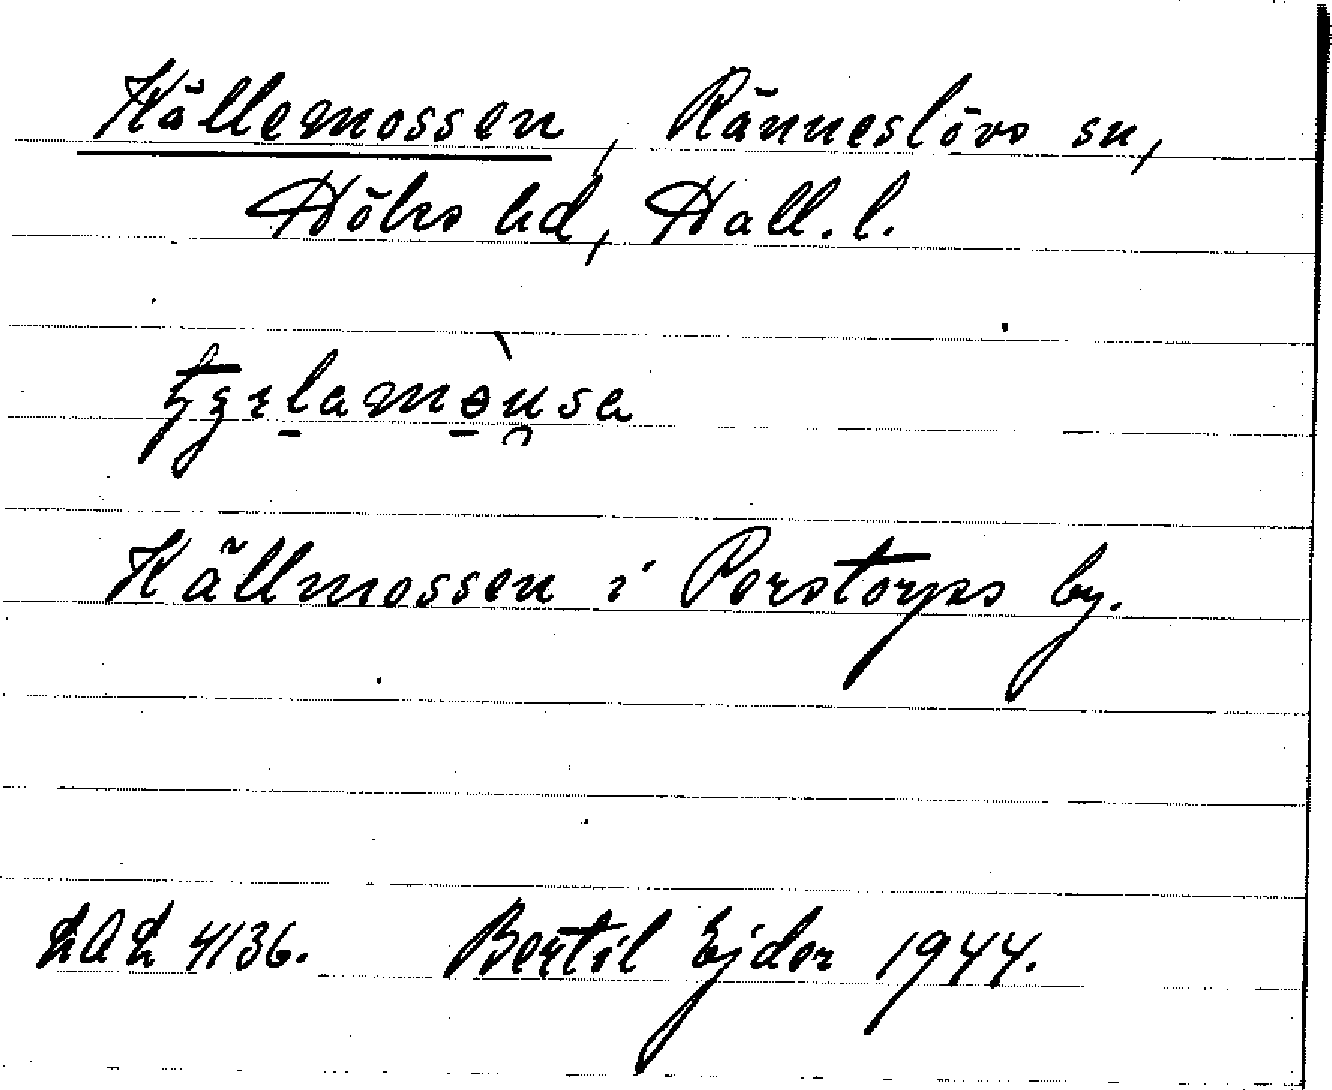 Källemossen, Ränneslövs sn,
Höks hd, Hall. l.
Källmossen i Porstorps by.
LAL 4136. Bertil Ejder 1944.